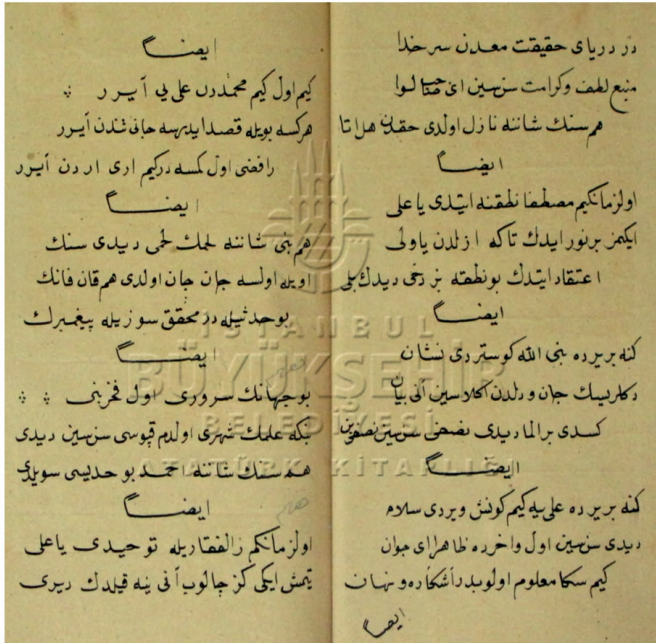 در دریای حقیقت معدن سر خدا
منبع لطف و کرامت سنسین ای صاحب لوا
هم سنك شاننه نازل اولدی حقدن هل اتا
ایضاً
اولزمانکیم مصطفا نطقنه ایتدی یا علی
ایکمز بر نور ایدك تاکه ازلدن یا ولی
اعتقاد ایتدك بو نطقه بز دخی دیدك بلی
ایضاً
کنه بریرده بنی الله کوستردی نشان
دکلریسك جان و دلدن اکلاسین آنی بیان
کسدی بر الما دیدی بضعی سنسین نصفین
ایضاً
کنه بریرده علی یه کیم کونش ویردی سلام
دیدی سنسین اول و اخرده ظاهر ای جوان
کیم سکا معلوم اولوبدر آشکاره و نهان
ایضاً
ایضاً
کیم اول کیم محمددن علی یی آیرر
هر کسه بویله قصد ایدرسه جانی تندن آیرر
رافضی اول کمسه درکیم اری اردن آیرر
ایضاً
هم بنی شاننه لحمك لحمی دیدی سنك
اویله اولسه جان جان اولدی هم قان قانك
بو حدثیله در محقق سوزیله پیغمبرك
ایضاً
بو جهانك سروری اول فخر بنی
بنکه علمك شهری اولدم قپوسی سنسین دیدی
هم سنك شاننه احمد بو حدیسی سویلدی
ایضاً
اولزمانکم زالفقاریله توحیدی یا علی
یتمش ایکی کز چالوب آنی ینه قیلدك دیری
ISTANBUL
BÜYÜKŞEHİR
BELEDİYESİ
ATATÜRK KİTAPLIĞI